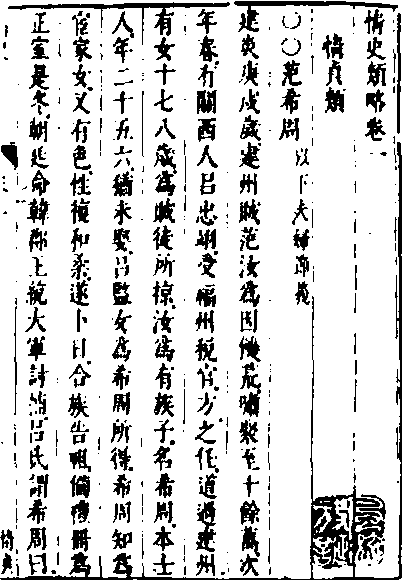 情史類略卷一
情貞類
〇〇范希周以下夫婦節義
建炎庚戌歲建州賊范汝為因饑荒嘯聚至十餘萬次
年春有關西人呂忠翊受福州稅官方之任道過建州
有女十七八歲為賊徒所掠汝為有族子名希周本士
人年二十五六猶未娶呂監女為希周所得希周知為
宦家女又有色性復和柔遂卜日合族告祖備禮冊為
正室是冬朝廷命韓郡王統大軍討捕呂氏謂希周曰
情貞